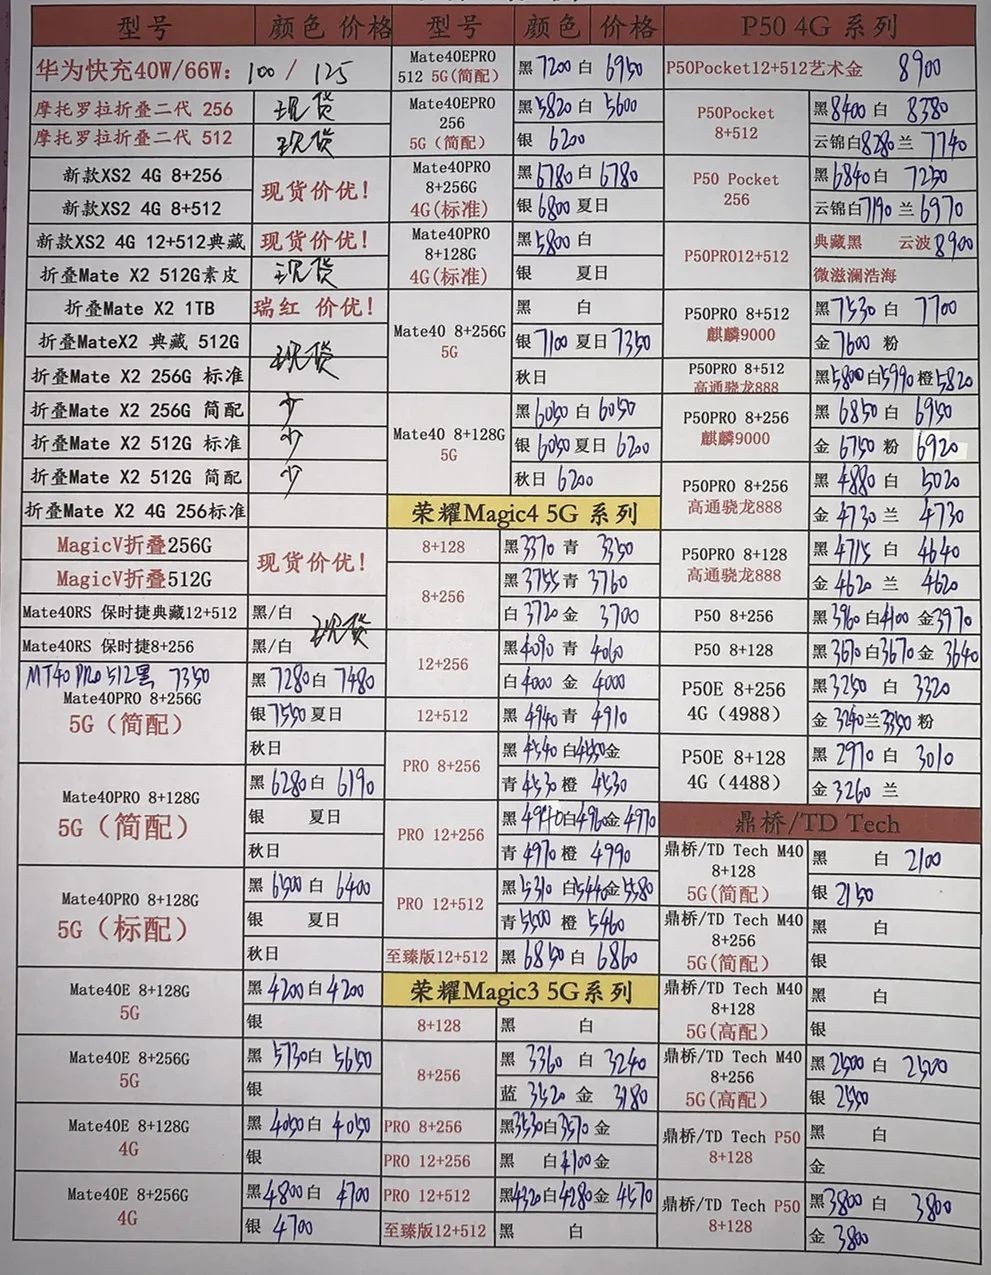 型号 颜色 价格
华为快充40W/66W: 100 / 125
摩托罗拉折叠二代 256 现货
摩托罗拉折叠二代 512 现货
新款XS2 4G 8+256
现货价优!
新款XS2 4G 8+512
新款XS2 4G 12+512典藏 现货价优!
折叠Mate X2 512G素皮 现货
折叠Mate X2 1TB 瑞红 价优!
折叠MateX2 典藏 512G
现货
折叠Mate X2 256G 标准
折叠Mate X2 256G 简配 少
折叠Mate X2 512G 标准 少
折叠Mate X2 512G 简配 少
折叠Mate X2 4G 256标准
MagicV折叠256G
现货价优!
MagicV折叠512G
Mate40RS 保时捷典藏12+512 黑/白
现货
Mate40RS 保时捷8+256 黑/白
MT40 PRO 512黑 7350
Mate40PRO 8+256G
5G（简配）
黑 7280 白 7480
银 7550 夏日
秋日
Mate40PRO 8+128G
5G（简配）
黑 6280 白 6190
银 夏日
秋日
Mate40PRO 8+128G
5G（标配）
黑 6500 白 6400
银 夏日
秋日
Mate40E 8+128G
5G
黑 4200 白 4200
银
Mate40E 8+256G
5G
黑 5730 白 5650
银
Mate40E 8+128G
4G
黑 4050 白 4050
银
Mate40E 8+256G
4G
黑 4800 白 4700
银 4700
型号 颜色 价格
Mate40EPRO
512 5G(简配)
黑 7200 白 6950
Mate40EPRO
256
5G(简配)
黑 5820 白 5600
银 6200
Mate40PRO
8+256G
4G(标准)
黑 6780 白 6780
银 6800 夏日
Mate40PRO
8+128G
4G(标准)
黑 5800 白
银 夏日
Mate40 8+256G
5G
黑 白
银 7100 夏日 7350
秋日
Mate40 8+128G
5G
黑 6050 白 6050
银 6050 夏日 6200
秋日 6200
荣耀Magic4 5G 系列
8+128 黑 3370 青 3350
8+256
黑 3755 青 3760
白 3720 金 3700
12+256
黑 4090 青 4060
白 4000 金 4000
12+512 黑 4940 青 4910
PRO 8+256
黑 4540 白 4550 金
青 4530 橙 4530
PRO 12+256
黑 4940 白 4960 金 4970
青 4970 橙 4990
PRO 12+512
黑 5310 白 5440 金 5580
青 5500 橙 5460
至臻版12+512 黑 6850 白 6860
荣耀Magic3 5G系列
8+128 黑 白
8+256
黑 3360 白 3240
蓝 3520 金 3180
PRO 8+256 黑 3530 白 3570 金
PRO 12+256 黑 白 4100 金
PRO 12+512 黑 4320 白 4280 金 4570
至臻版12+512 黑 白
P50 4G 系列
P50Pocket12+512艺术金 8900
P50Pocket
8+512
黑 8400 白 8380
云锦白 8280 兰 7740
P50 Pocket
256
黑 6840 白 7250
云锦白 7190 兰 6970
P50PRO12+512
典藏黑 云波 8900
微滋澜浩海
P50PRO 8+512
麒麟9000
黑 7530 白 7700
金 7600 粉
P50PRO 8+512
高通骁龙888
黑 5800 白 5990 橙 5820
P50PRO 8+256
麒麟9000
黑 6850 白 6950
金 6750 粉 6920
P50PRO 8+256
高通骁龙888
黑 4880 白 5020
金 4730 兰 4730
P50PRO 8+128
高通骁龙888
黑 4715 白 4640
金 4620 兰 4620
P50 8+256 黑 3960 白 4100 金 3970
P50 8+128 黑 3670 白 3670 金 3640
P50E 8+256
4G（4988）
黑 3250 白 3320
金 3240 兰 3350 粉
P50E 8+128
4G（4488）
黑 2970 白 3010
金 3260 兰
鼎桥/TD Tech
鼎桥/TD Tech M40
8+128
5G(简配)
黑 白 2100
银 2150
鼎桥/TD Tech M40
8+256
5G(简配)
黑 白
银
鼎桥/TD Tech M40
8+128
5G(高配)
黑 白
银
鼎桥/TD Tech M40
8+256
5G(高配)
黑 2500 白 2500
银 2550
鼎桥/TD Tech P50
8+128
黑 白
金
鼎桥/TD Tech P50
8+128
黑 3800 白 3800
金 3800